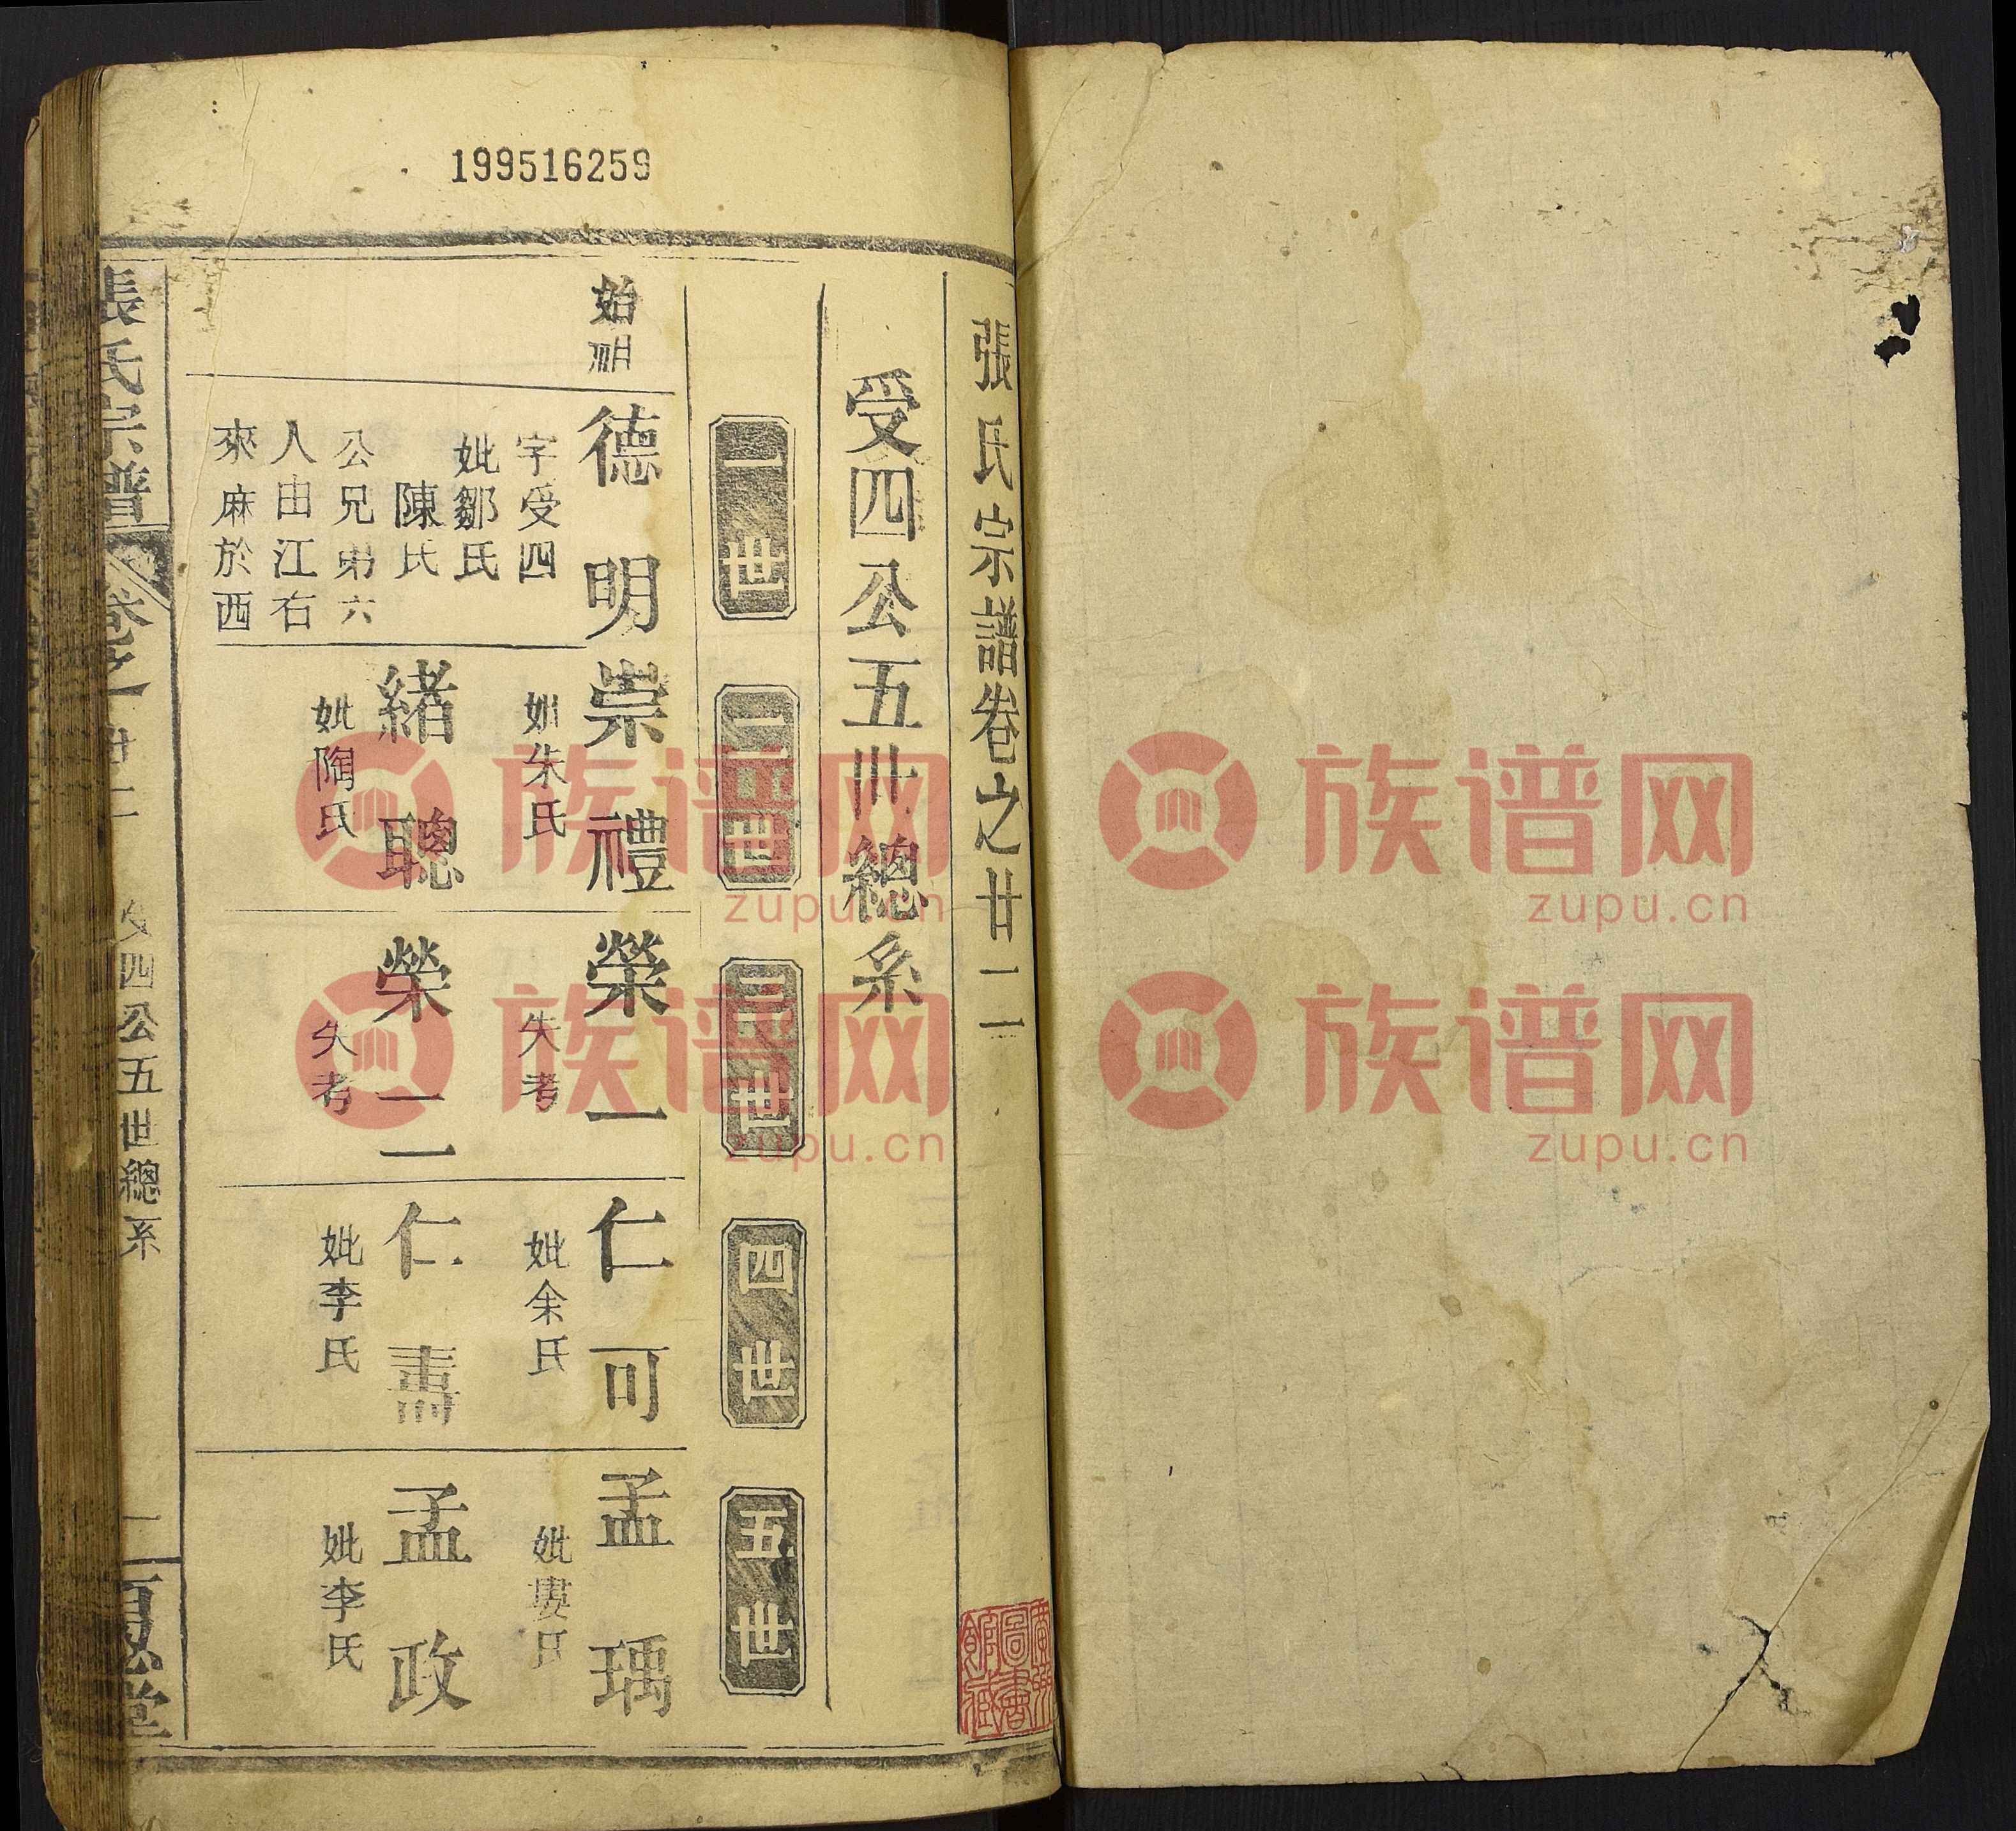 199516259
張氏宗譜卷之廿二
受四公五世總系
一世
二世
三世
四世
五世
始祖
德明
字受四
妣鄒氏
陳氏
公兄弟六
人由江右
來麻於西
崇禮
妣朱氏
緒聰
妣陶氏
榮一
失考
榮二
失考
仁可
妣余氏
仁壽
妣李氏
孟瑀
妣婁氏
孟政
妣李氏
張氏宗譜
卷之廿二
受四公五世總系
一
百忍堂
族谱网
zupu.cn
族谱网
zupu.cn
族谱网
zupu.cn
族谱网
zupu.cn